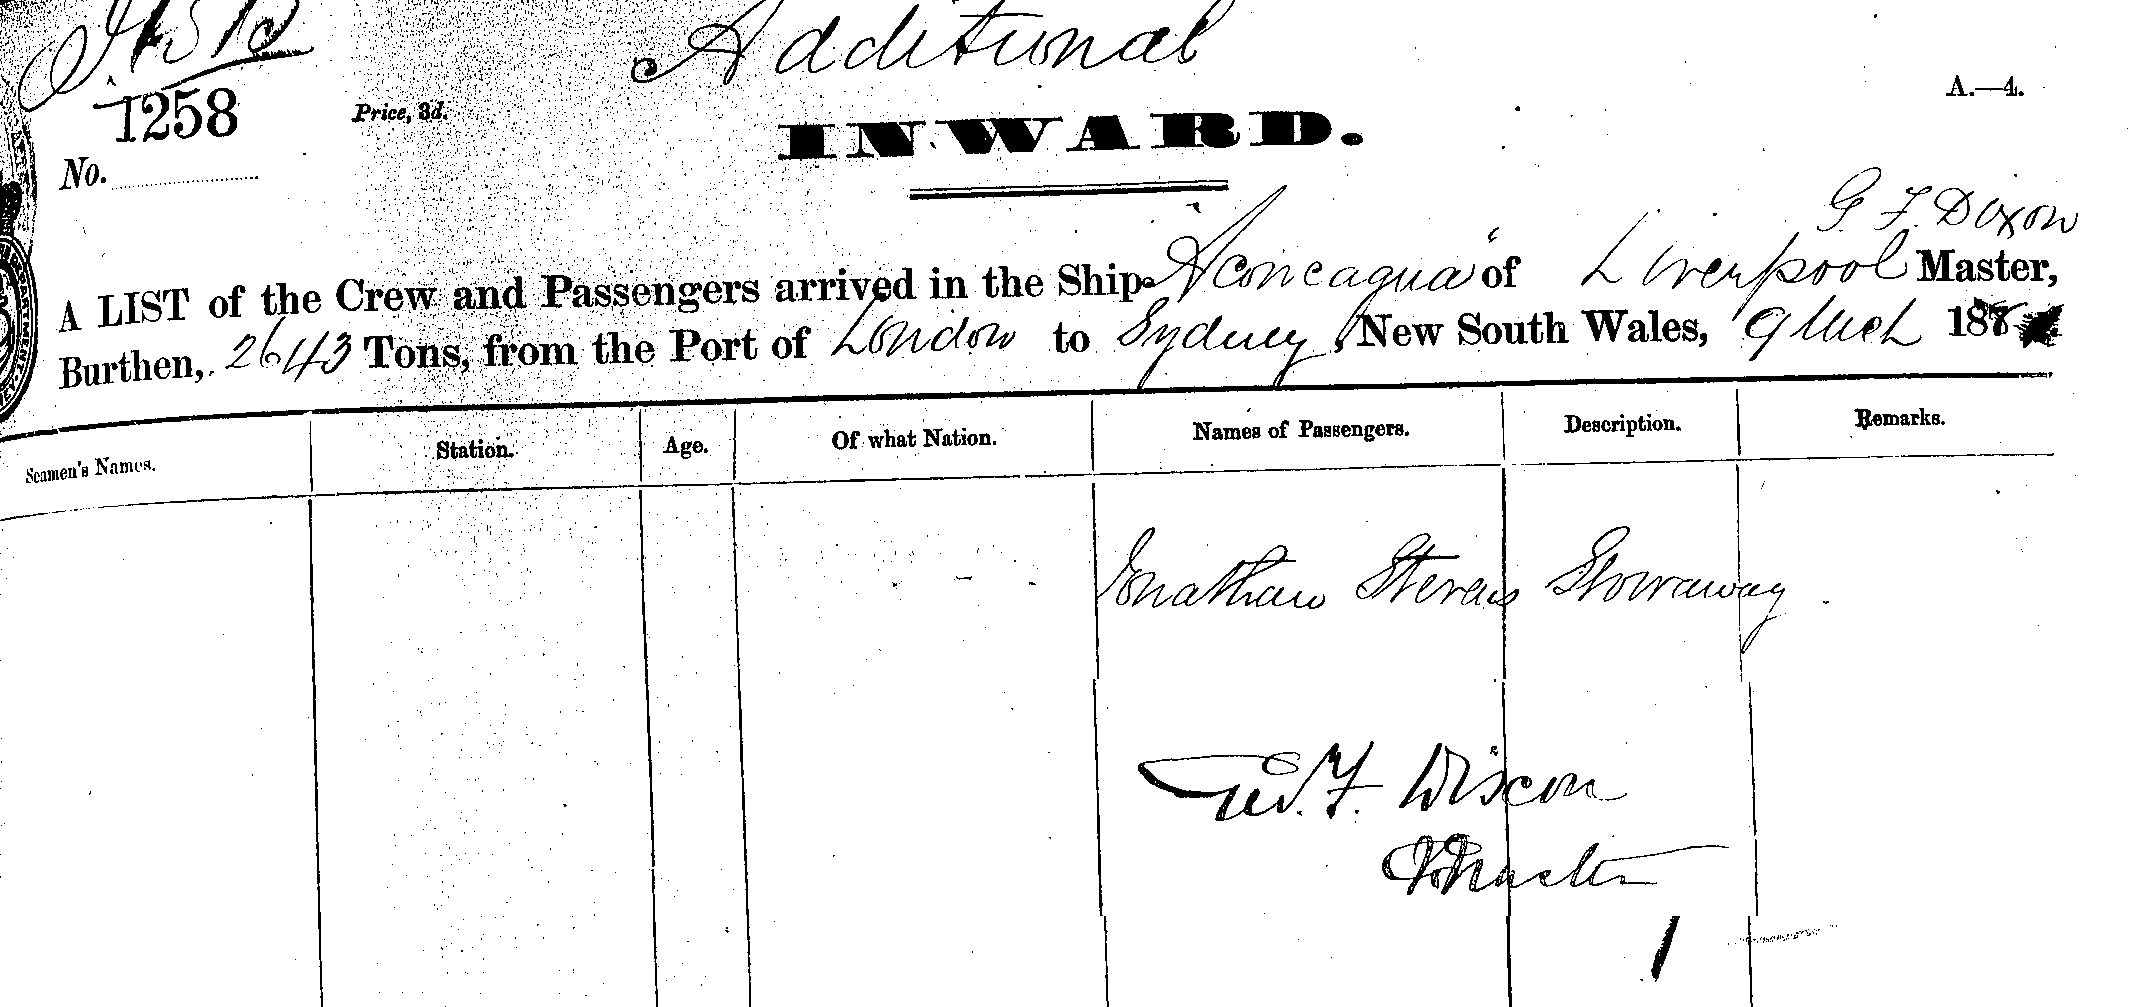 Additional
1258
Price, 3d.
A.—4.
INWARD.
No.
G. F. Dixon
A LIST of the Crew and Passengers arrived in the Ship "Aconcagua" of Liverpool Master,
Burthen, 2643 Tons, from the Port of London to Sydney, New South Wales, 9 Mch 188
Seamen's Names. Station. Age. Of what Nation. Names of Passengers. Description. Remarks.
Jonathan Stevens Stowaway
Geo. F. Dixon
Master
1